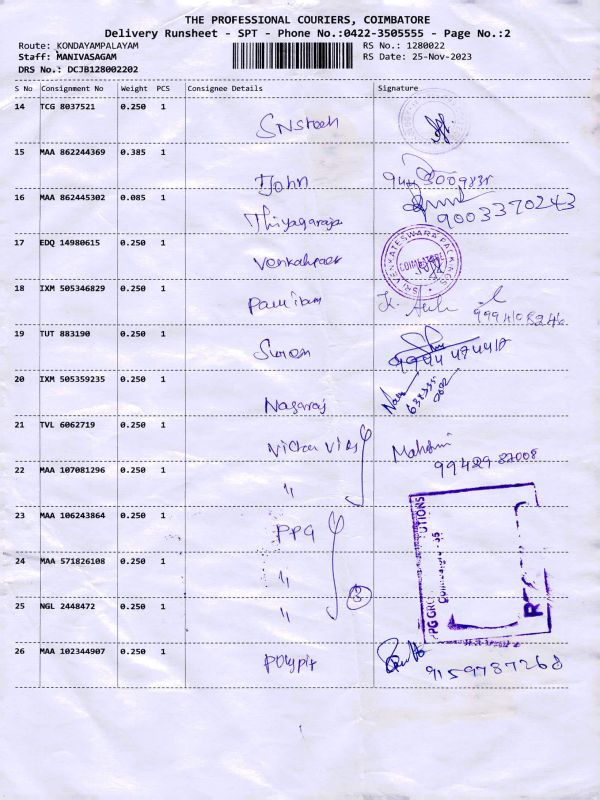 THE PROFESSIONAL COURIERS, COIMBATORE
Delivery Runsheet - SPT - Phone No.:0422-3505555 - Page No.:2
Route: KONDAYAMPALAYAM RS No.: 1280022
Staff: MANIVASAGAM RS Date: 25-Nov-2023
DRS No.: DCJB128002202
S No Consignment No Weight PCS Consignee Details Signature
14 TCG 8037521 0.250 1
15 MAA 862244369 0.385 1
John
16 MAA 862445302 0.085 1
Thiyagaraja 9003370243
17 EDQ 14980615 0.250 1
SRI VENKATESWARA PACKINGS
COIMBATORE
18 IXM 505346829 0.250 1
19 TUT 883190 0.250 1
20 IXM 505359235 0.250 1
Nagaraj
21 TVL 6062719 0.250 1
99429 82008
22 MAA 107081296 0.250 1
"
23 MAA 106243864 0.250 1
PPG
24 MAA 571826108 0.250 1
"
3
25 NGL 2448472 0.250 1
"
26 MAA 102344907 0.250 1
9159787268